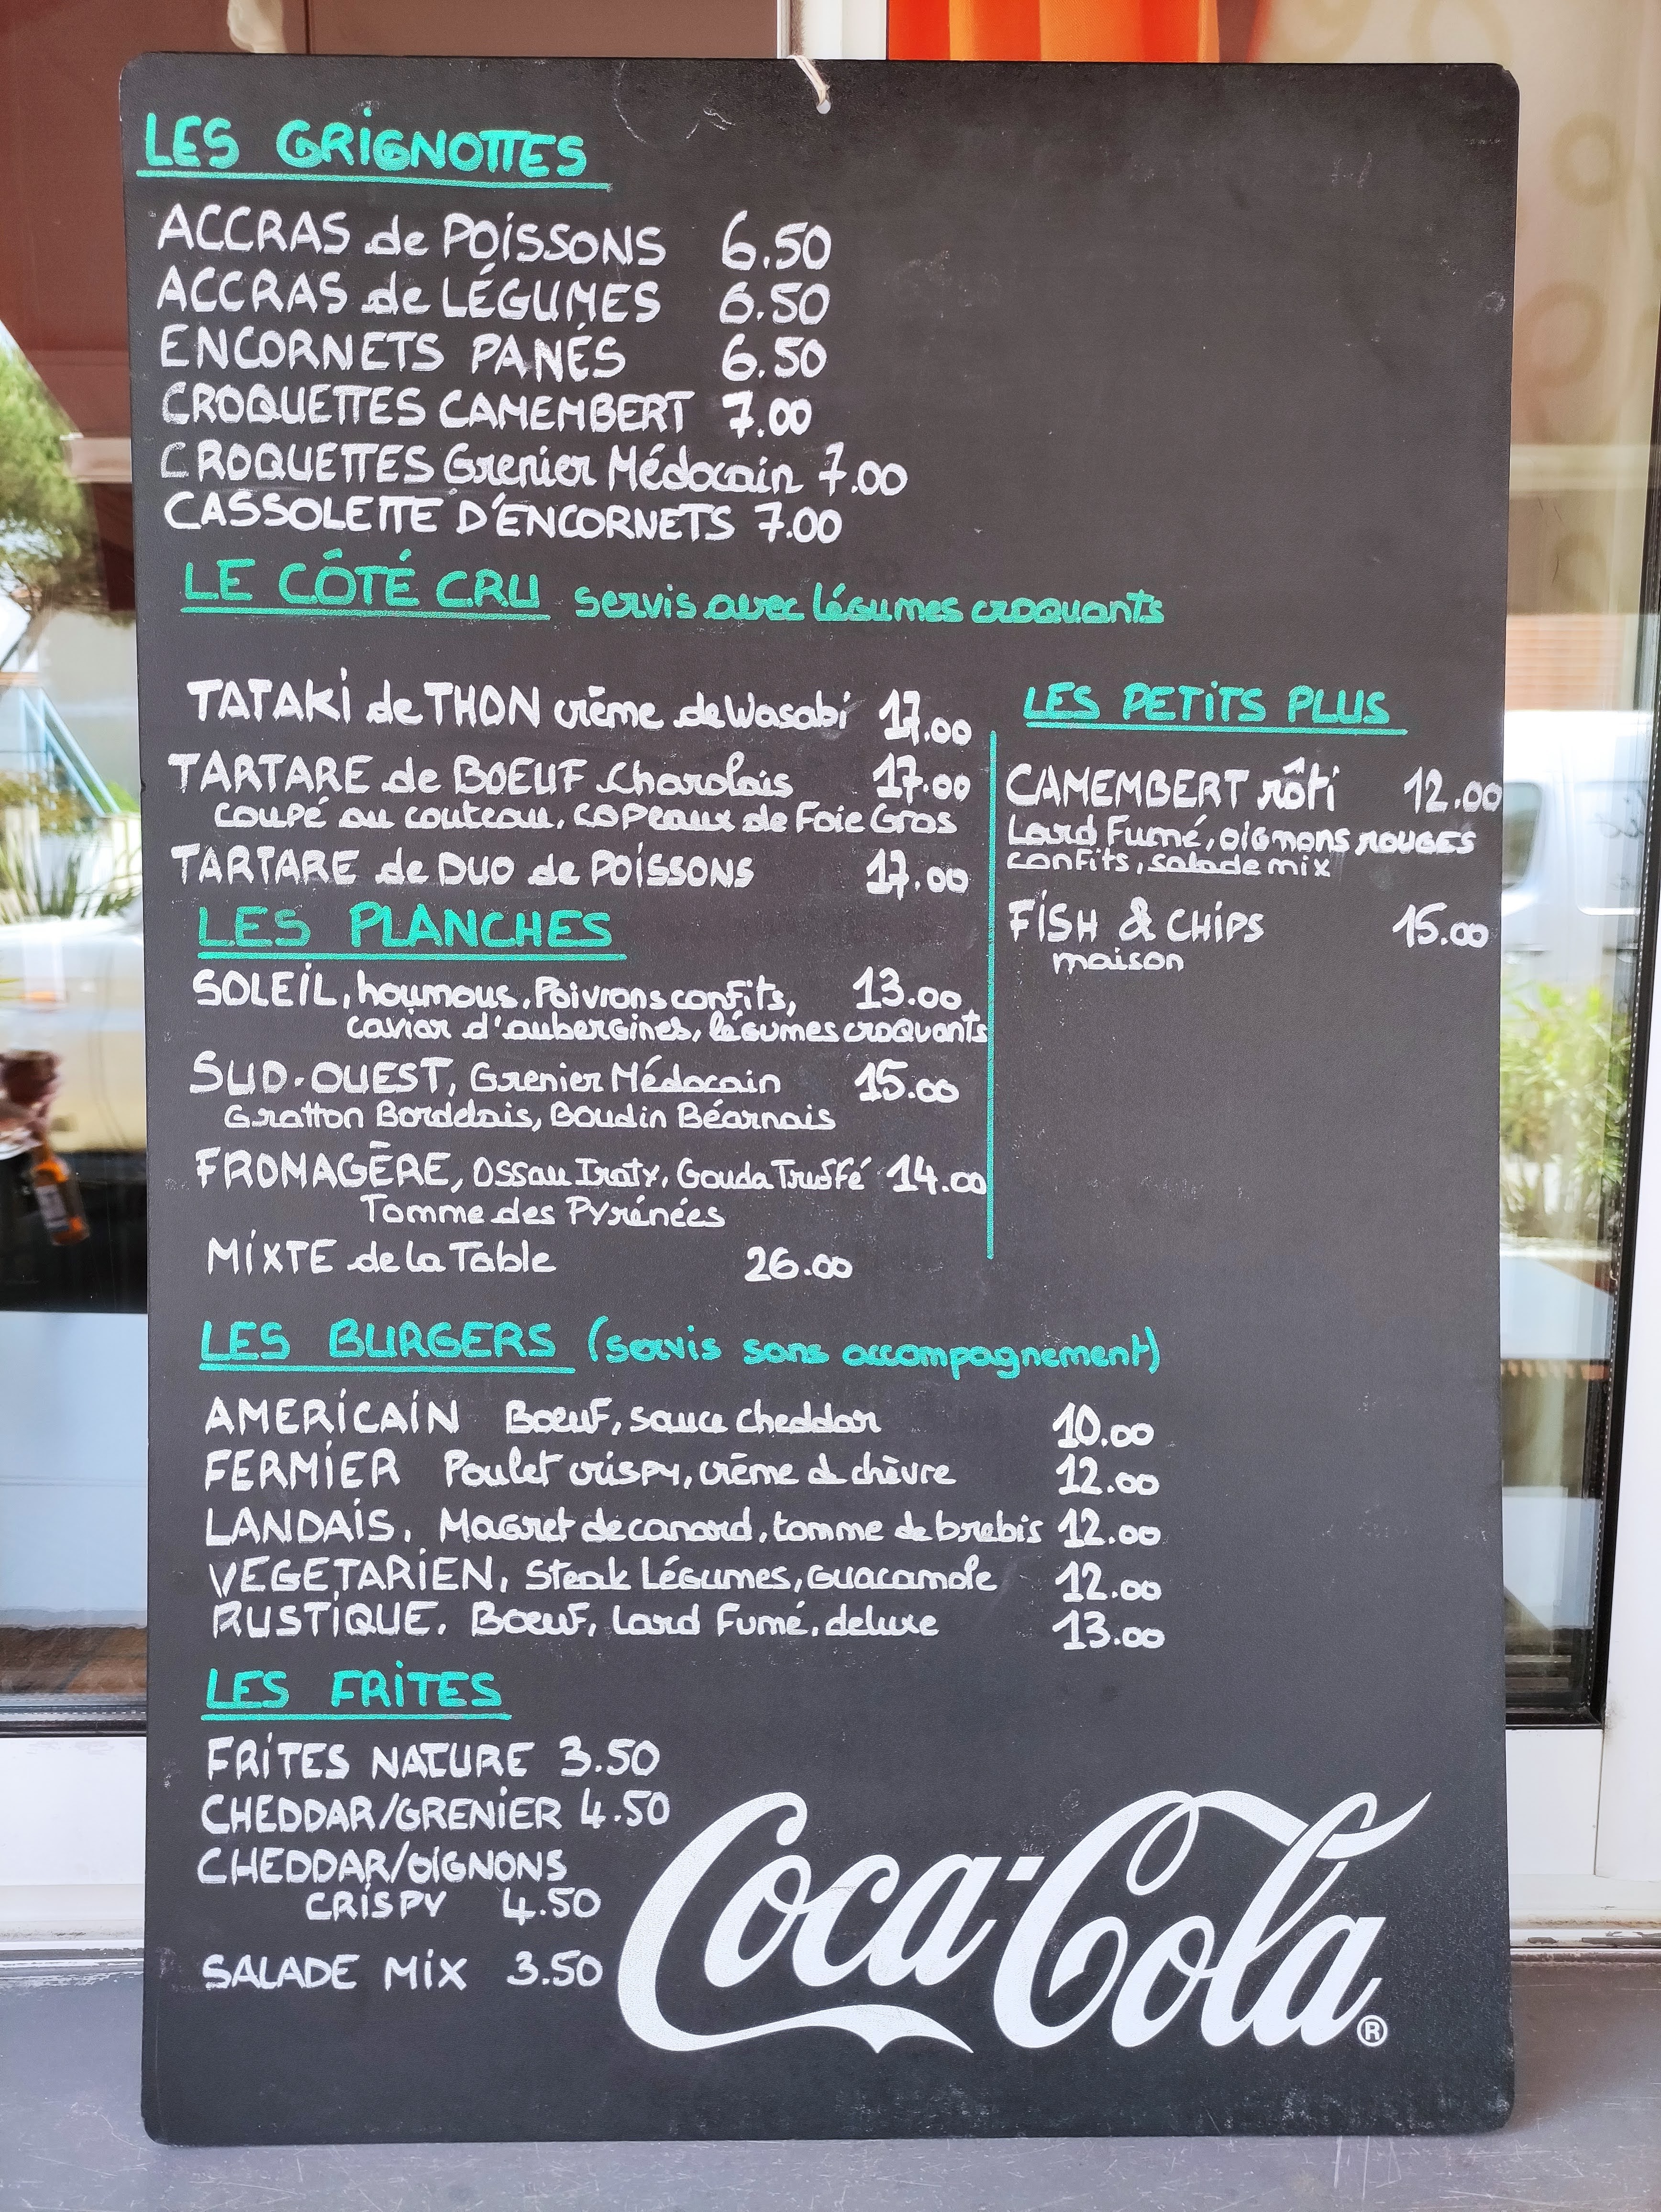 LES GRIGNOTTES
ACCRAS de POISSONS 6.50
ACCRAS de LÉGUMES 6.50
ENCORNETS PANÉS 6.50
CROQUETTES CAMEMBERT 7.00
CROQUETTES Grenier Médocain 7.00
CASSOLETTE D'ENCORNETS 7.00
LE CÔTÉ CRU servis avec légumes croquants
TATAKI de THON crème de Wasabi 17.00
TARTARE de BOEUF Charolais 17.00
coupé au couteau, copeaux de Foie Gras
TARTARE de DUO de POISSONS 17.00
LES PETITS PLUS
CAMEMBERT rôti 12.00
Lard Fumé, oignons rouges
confits, salade mix
FISH & CHIPS 15.00
maison
LES PLANCHES
SOLEIL, houmous, Poivrons confits, 13.00
caviar d'aubergines, légumes croquants
SUD-OUEST, Grenier Médocain 15.00
Gratton Bordelais, Boudin Béarnais
FROMAGÈRE, Ossau Iraty, Gouda Truffé 14.00
Tomme des Pyrénées
MIXTE de la Table 26.00
LES BURGERS (servis sans accompagnement)
AMERICAIN Boeuf, sauce cheddar 10.00
FERMIER Poulet crispy, crème de chèvre 12.00
LANDAIS, Magret de canard, tomme de brebis 12.00
VEGETARIEN, Steak Légumes, guacamole 12.00
RUSTIQUE, Boeuf, Lard Fumé, deluxe 13.00
LES FRITES
FRITES NATURE 3.50
CHEDDAR/GRENIER 4.50
CHEDDAR/OIGNONS
CRISPY 4.50
SALADE MIX 3.50
Coca-Cola®